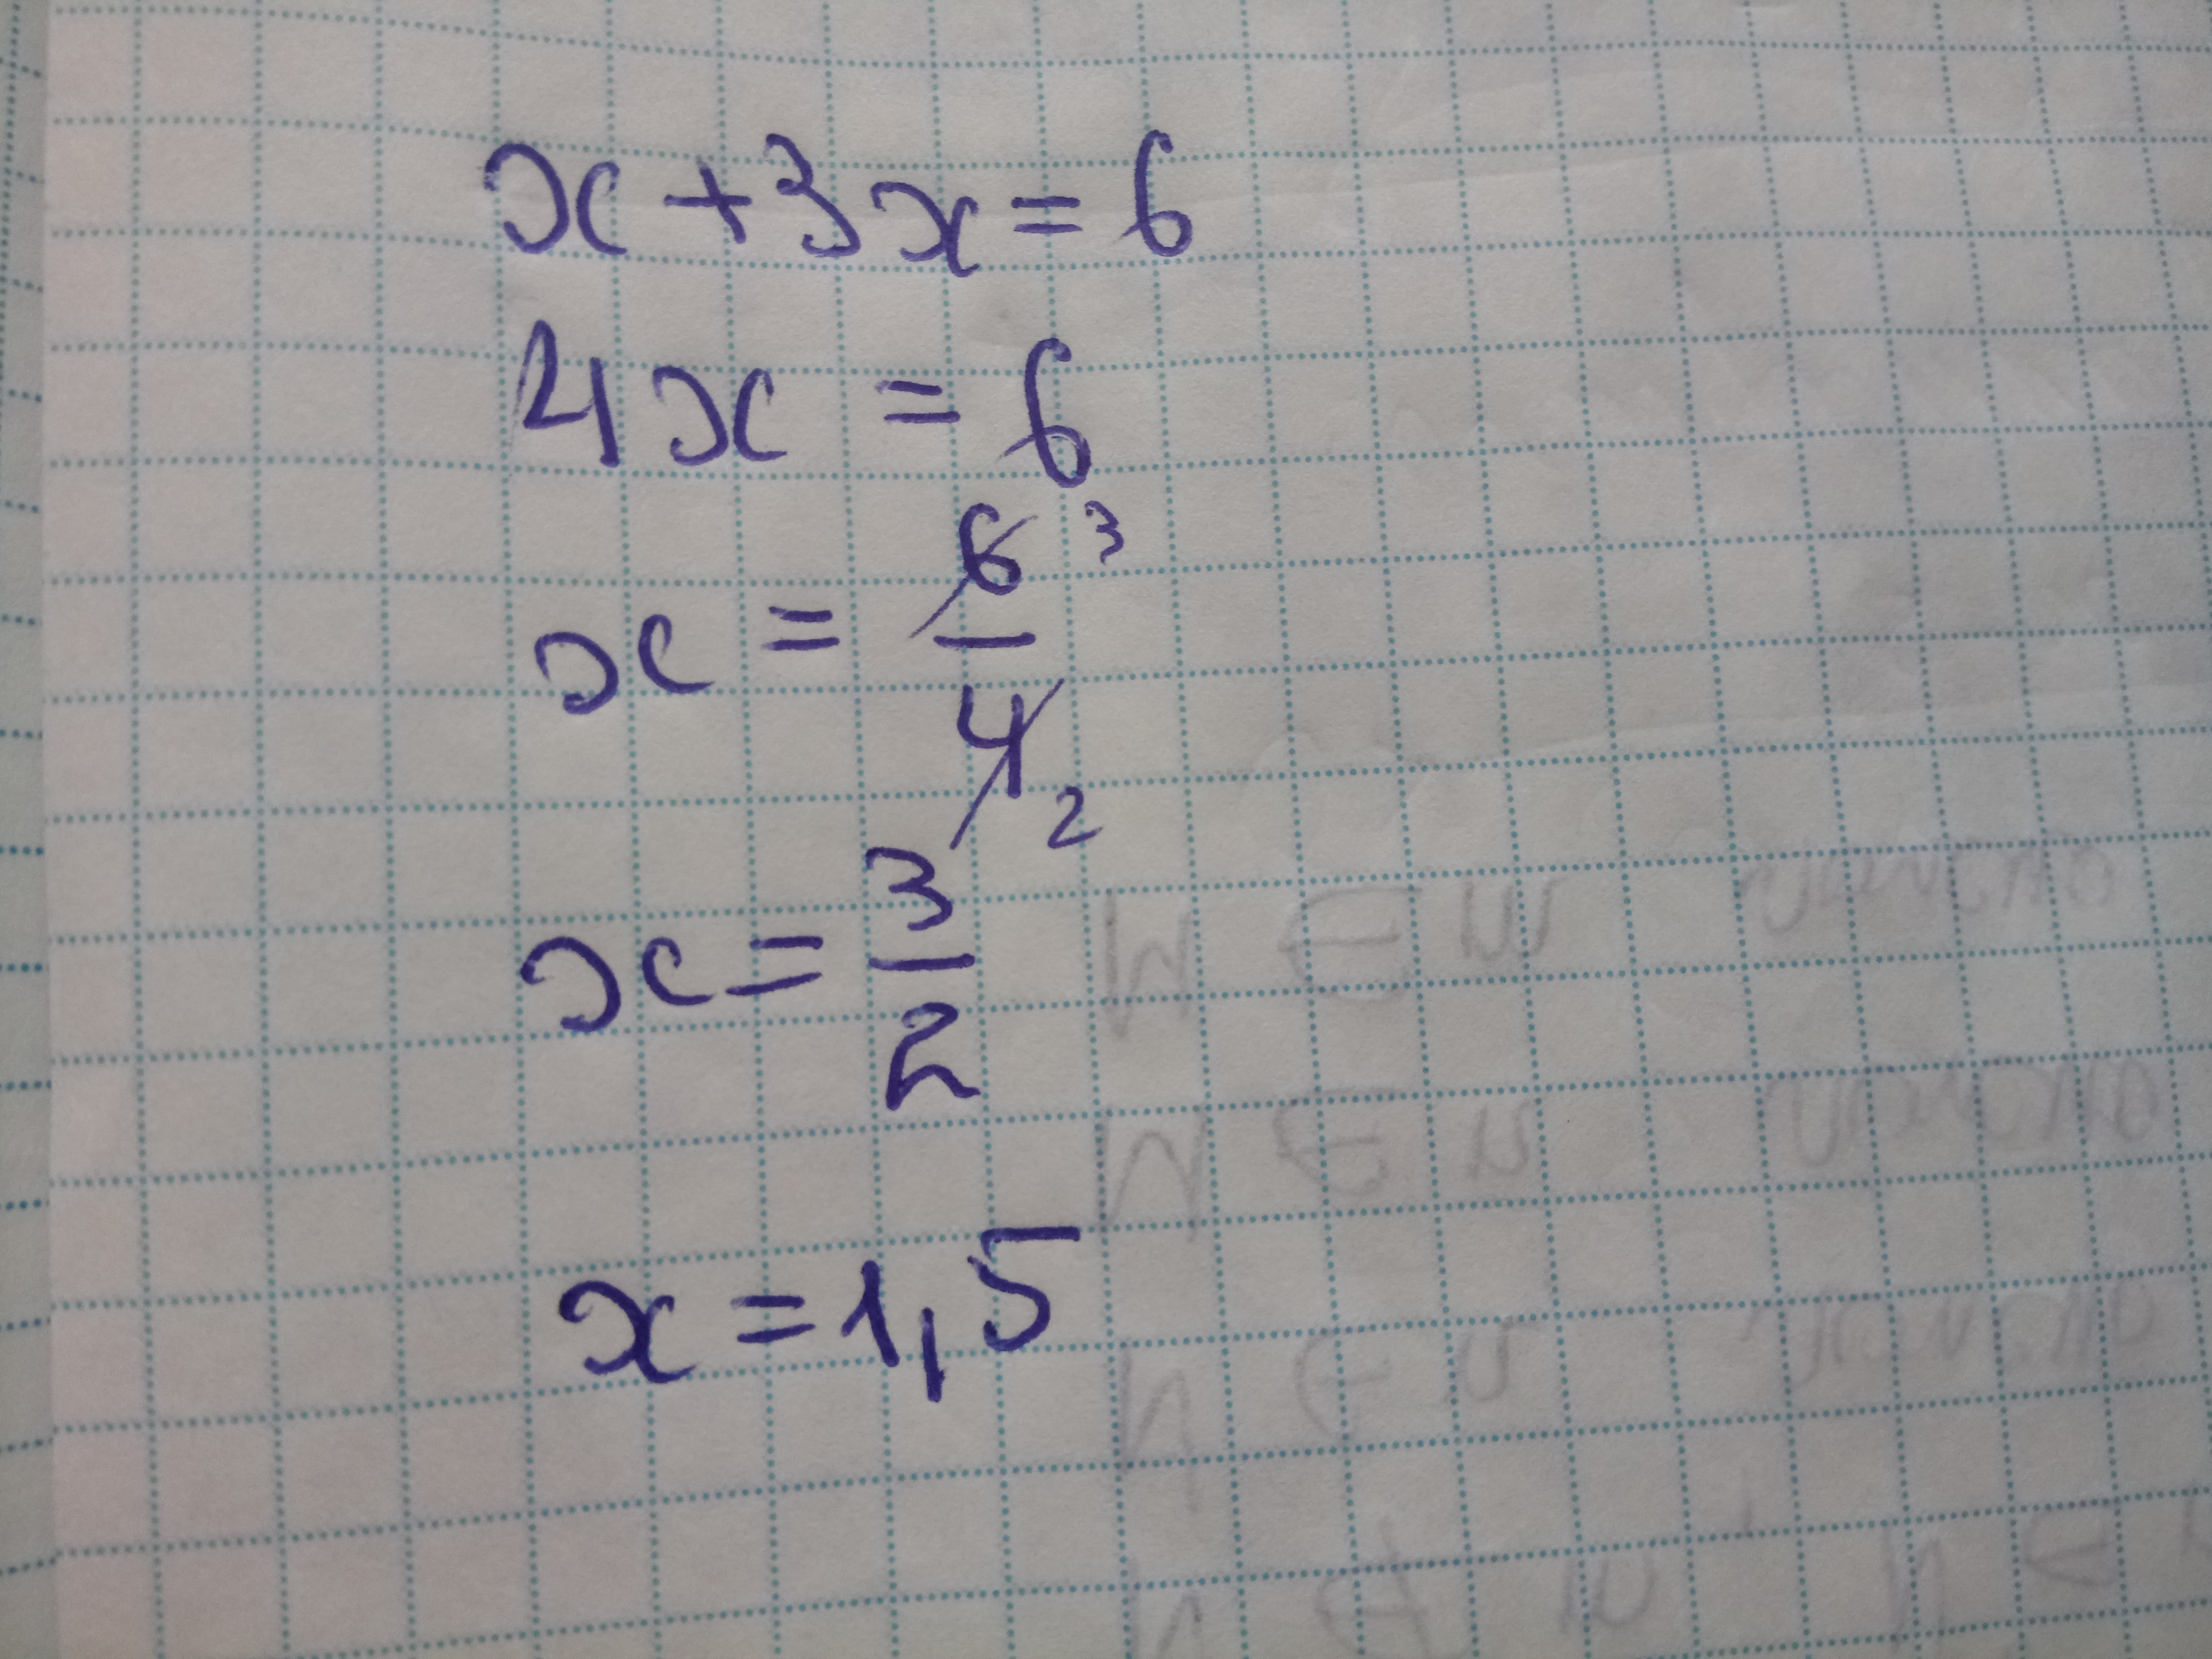 x+3x=6
4x=6
x=6/4 3 2
x=3/2
x=1,5